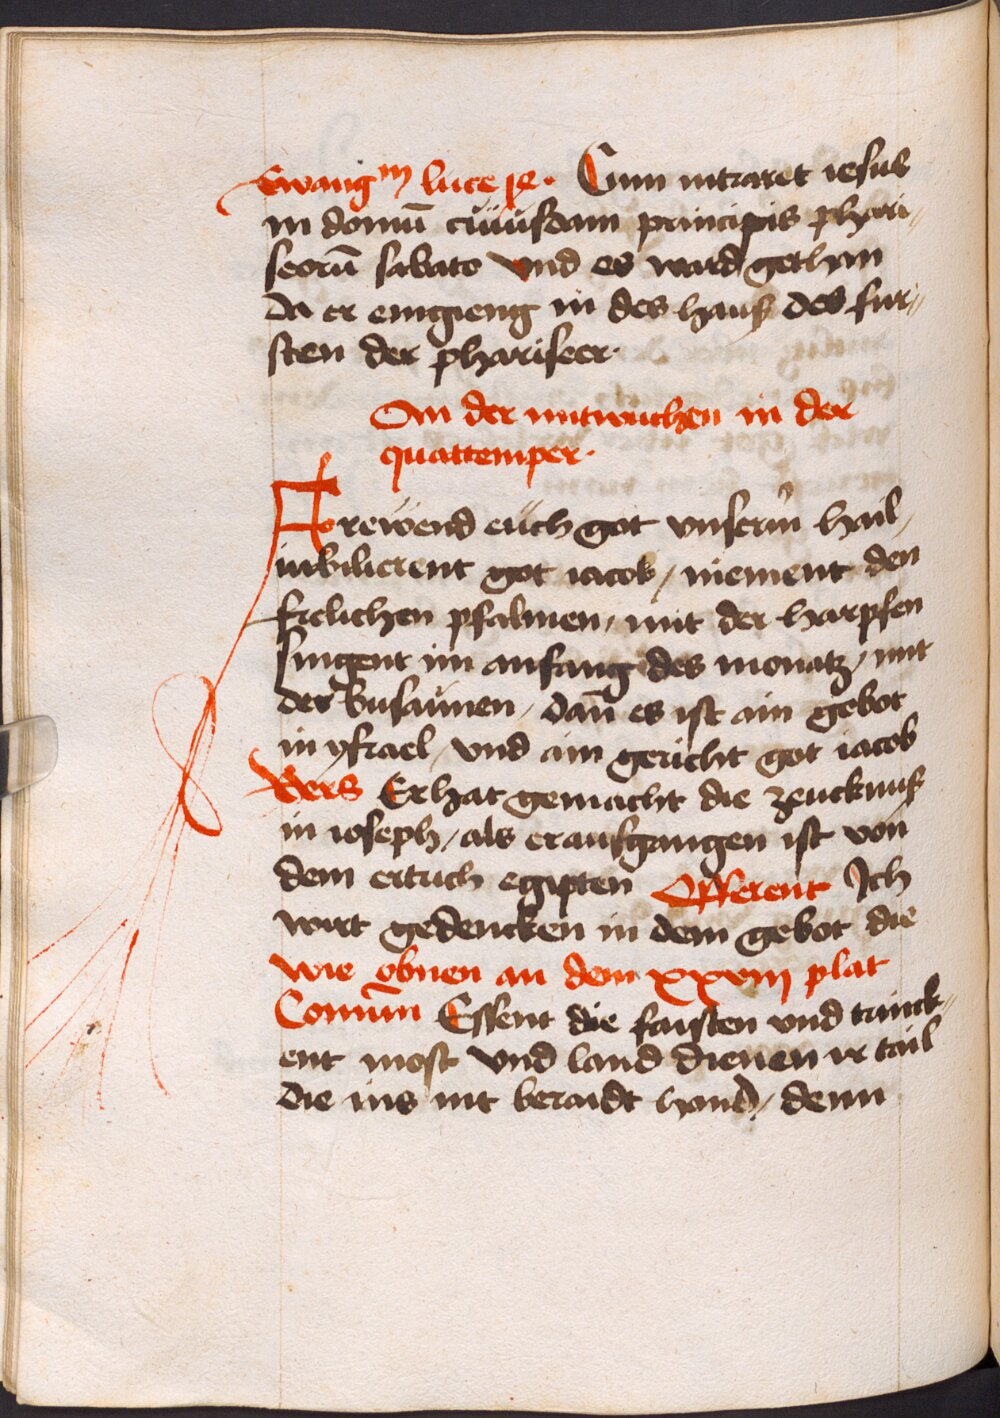 Ewangm luce Cum intraret iesus
in domū cuiusdam principis phari„
seorū sabato Vnd es ward gethan
da er eingieng in des hauß des fur„
sten der phariseer.
An der mitwuchen in der
quattemper.
Frewend euch got vnserm hail,
iubilierent got iacob / niement den
frelichen psalmen, mit der harpfen
singent im anfang des monatz, mit
der busaunen, dan̄ es ist ain gebot
in ysrael, vnd ain gericht got iacob
Vers Er hat gemacht die zeucknuß
in ioseph, als er außgangen ist von
dem ertrich egipten Offerent Ich
wirt gedencken in dem gebot die
wie obnen an dem xxviij plat
Comūm Essent die faisten vnd trinck„
ent most vnd land dienen ir tail
die ins nit beraidt hand, denn